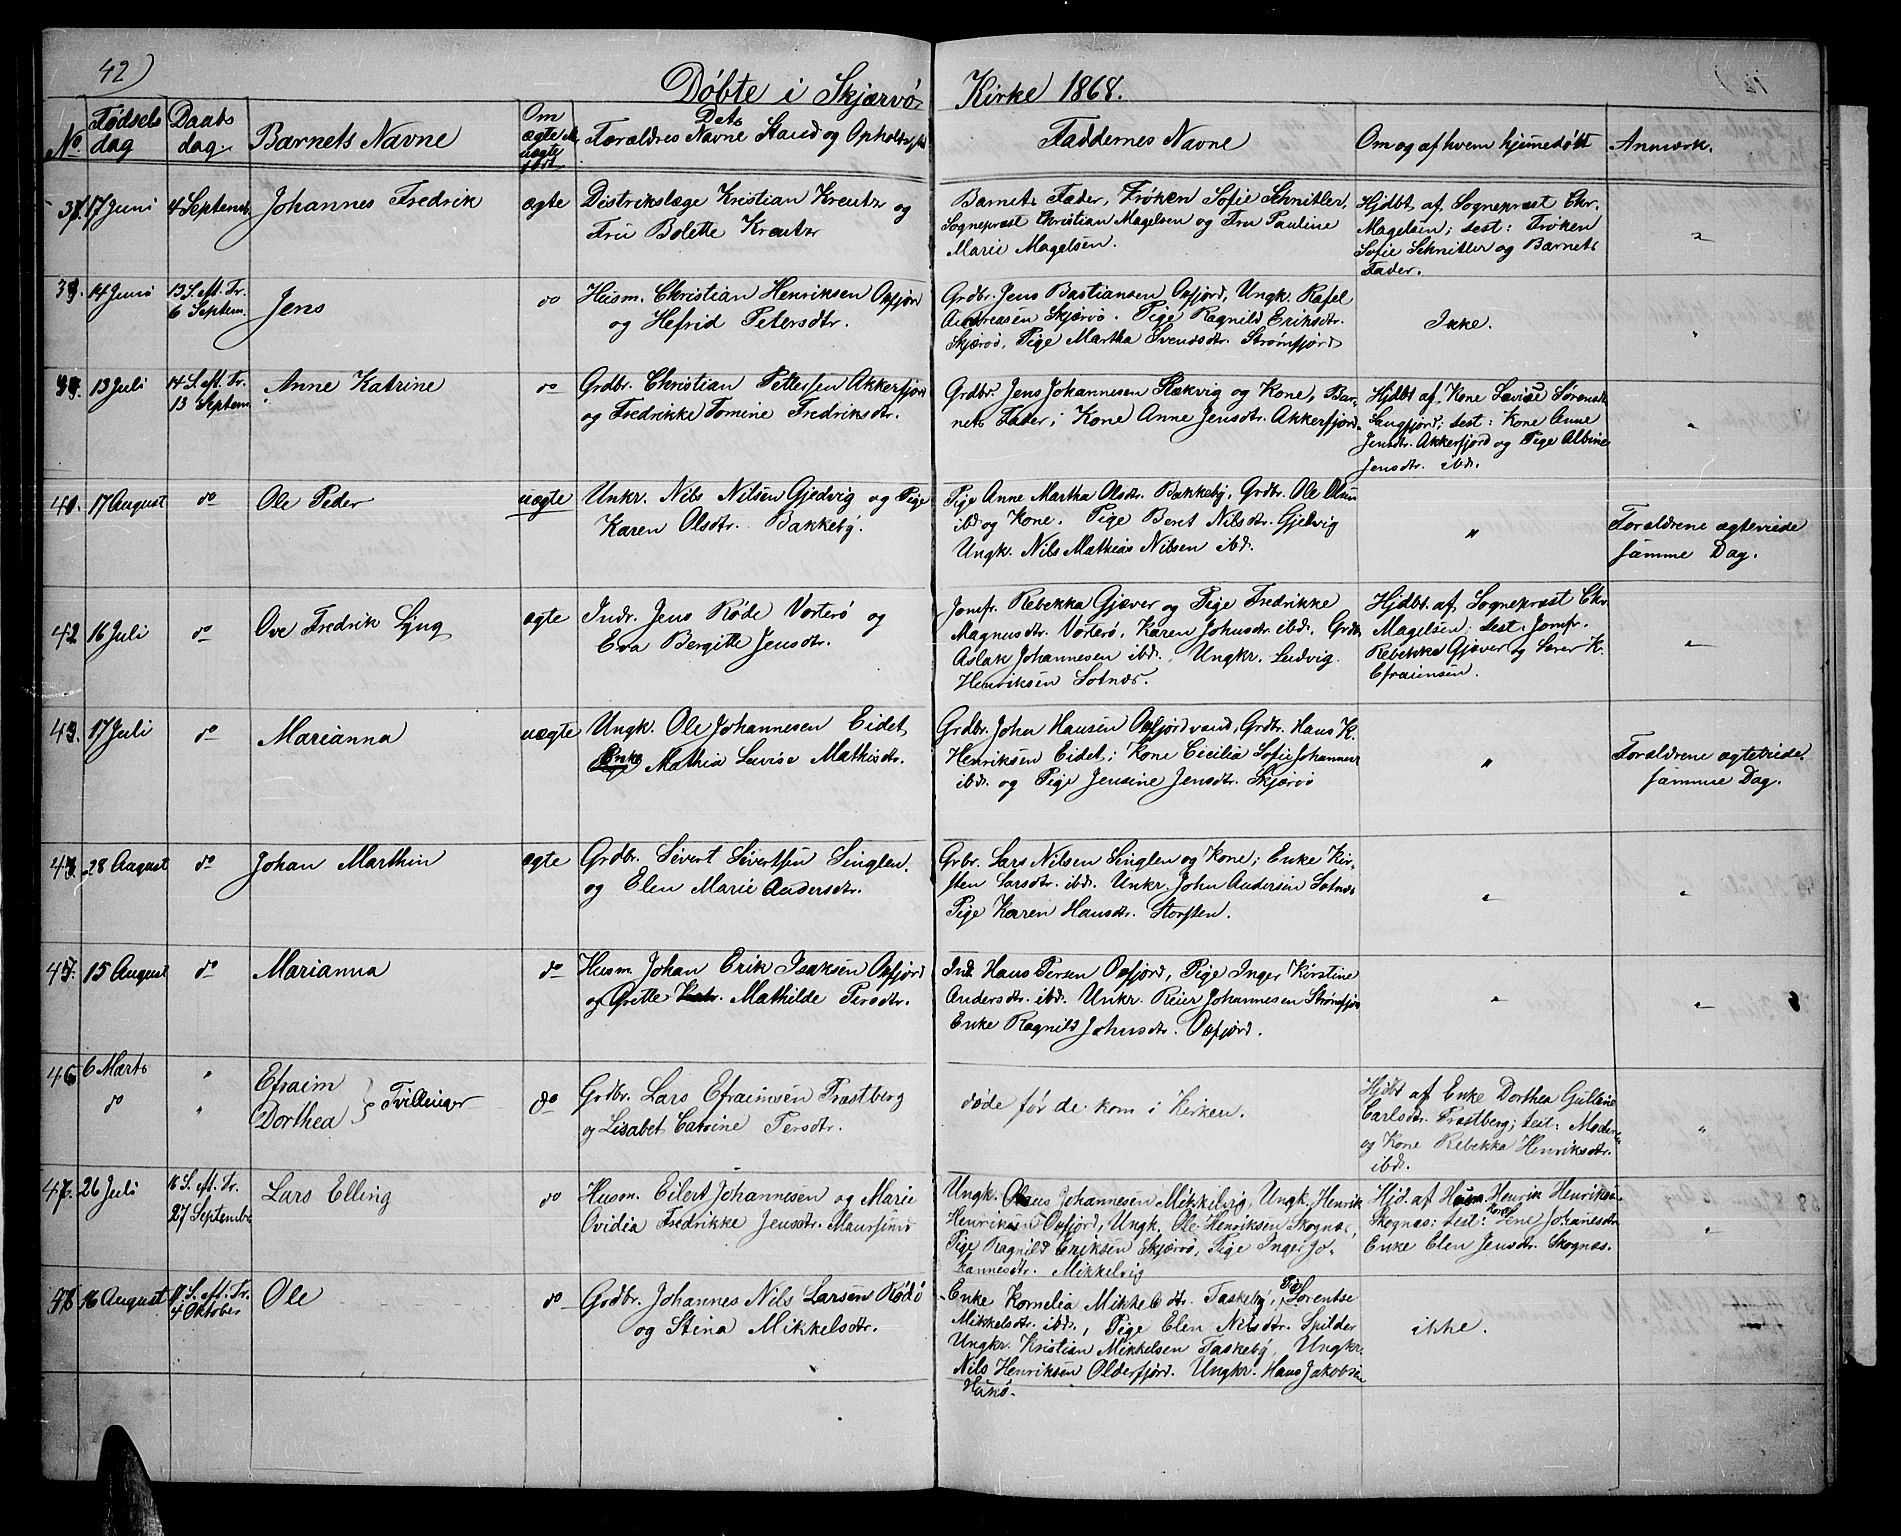 42)
Döbte i Skjærvö Kirke 1868.
No
Fødsels dag
Daabs dag.
Barnets Navne
Om ægte el. uægte født
Forældres Navne Stand og Opholdssted
Faddernes Navne
Om og af hvem hjemmedøbt
Anmærk.
17 Juni
4 Septemb.
Johannes Fredrik
ægte
Distrikslæge Kristian Kreutz og
Fru Bolette Kreutz
Barnets Fader, Frøken Sofie Schnitler,
Sogneprest Christian Magelsen og Fru Pauline
Marie Magelsen.
Hjdbt af Sogneprest Chr.
Magelsen; test: Frøken
Sofie Schnitler og Barnets
Fader.
14 Juni
13 S. eft. Tr.
6 Septem.
Jens
do
Husm. Christian Henriksen Oxfjord
og Hefrid Petersdtr.
Grdbr. Jens Bastiansen Oxfjord, Ungk. Rafel
Andreasen Skjærvö. Pige Ragnild Eriksdtr.
Skjærvö, Pige Martha Svendsdtr. Strömfjord
Ikke.
13 Juli
14 S. eft. Tr.
13 Septem
Anne Katrine
do
Grdbr. Christian Pettersen Akkerfjord
og Fredrikke Tomine Fredriksdtr.
Grdbr. Jens Johannesen Slækvig og Kone, Bar-
nets Fader; Kone Anne Jensdtr. Akkerfjord.
Hjdbt af Kone Lovise Sørensdtr
Langfjord; test: Kone Anne
Jensdtr. Akkerfjord og Pige Albine
Jensdtr. ibd.
17 August
do
Ole Peder
uægte
Unkr. Nils Nilsen Gjedvig og Pige
Karen Olsdtr. Bakkebÿ.
Pige Anne Martha Olsdtr. Bakkebÿ, Grdbr. Ole Olsen
ibd og Kone. Pige Beret Nilsdtr. Gjedvig
Ungk. Nils Mathias Nilsen ibd.
"
Forældrene ægteviede
samme Dag.
42
16 Juli
do
Ove Fredrik Ljng
ægte
Indr. Jens Röde Vorterö og
Eva Bergitte Jensdtr.
Jomfr. Rebekka Gjæver og Pige Fredrikke
Magnusdtr. Vorterö, Karen Johnsdtr. ibd. Grdbr.
Aslak Johannesen ibd. Ungkr. Ludvig
Henriksen Sotnæs.
Hjdbt. af Sogneprest Chr
Magelsen. test. Jomfr.
Rebekka Gjæver og Lærer K.
Efraimsen.
"
17 Juli
do
Marianna
uægte
Ungk. Ole Johannesen Eidet
Enke Mathia Lovise Mathisdtr.
Grdbr. John Hansen Oxfjordvand, Grdbr. Hans K.
Henriksen Eidet; Kone Cecilia Sofie Johannes
ibd. og Pige Jensine Jensdtr. Skjærvö
"
Forældrene ægteviede
samme Dag.
28 August
do
Johan Marthin
ægte
Grdbr. Sivert Sivertsen Singlen.
og Elen Marie Andersdtr.
Grbr. Lars Nilsen Singlen og Kone; Enke Kir-
sten Larsdtr. ibd. Unkr. John Andersen Sotnæs
Pige Karen Hansdtr. Storsten.
"
15 August
do
Marianna
do
Husm. Johan Erik Isaksen Oxfjord
og Grette Mathilde Persdtr.
Ind. Hans Persen Oxfjord, Pige Inger Kirstine
Andersdtr. ibd. Unkr. Reier Johannesen Strömfjor
Enke Ragnild Johnsdtr. Oxfjord.
"
46
6 Marts
do
"
Efraim
Dorthea } Tvillinger
do
Grdbr. Lars Efraimsen Træstberg
og Lisabet Catrine Persdtr.
døde før de kom i Kirken.
Hjdbt af Enke Dorthea Gulline
Carlsdtr. Træstberg; test: Moderen
og Kone Rebekka Henriksdtr.
ibd.
"
47.
26 Juli
16 S. eft. Tr.
27 September
Lars Elling
do
Husm. Eilert Johannesen og Marie
Ovidia Fredrikke Jensdtr. Maursund
Ungk. Olaus Johannesen Mikkelvig, Ungk. Henrik
Henriksen Oxfjord, Ungk. Ole Henriksen Skognæs,
Pige Ragnild Eriksen Skjærvö, Pige Inger Jo-
hannesdtr. Mikkelvig
Hjd. af Husm. Henrik Henriksen
Skognæs: test: Kone Lene Johanesdtr
Enke Elen Jensdtr. Skognæs.
"
48
16 August
17 S. eft. Tr.
4 Oktober
Ole
do
Grdbr. Johannes Nils Larsen Rödö
og Stina Mikkelsdtr.
Enke Kornelia Mikkelsdtr. Taskebÿ, Pige Lorentse
Mikkelsdtr. ibd., Pige Elen Nilsdtr. Spilder
Ungkr. Kristian Mikkelsen Taskebÿ, Ungkr.
Nils Henriksen Olderfjord. Ungkr. Hans Jakobsen
Hukö.
ikke.